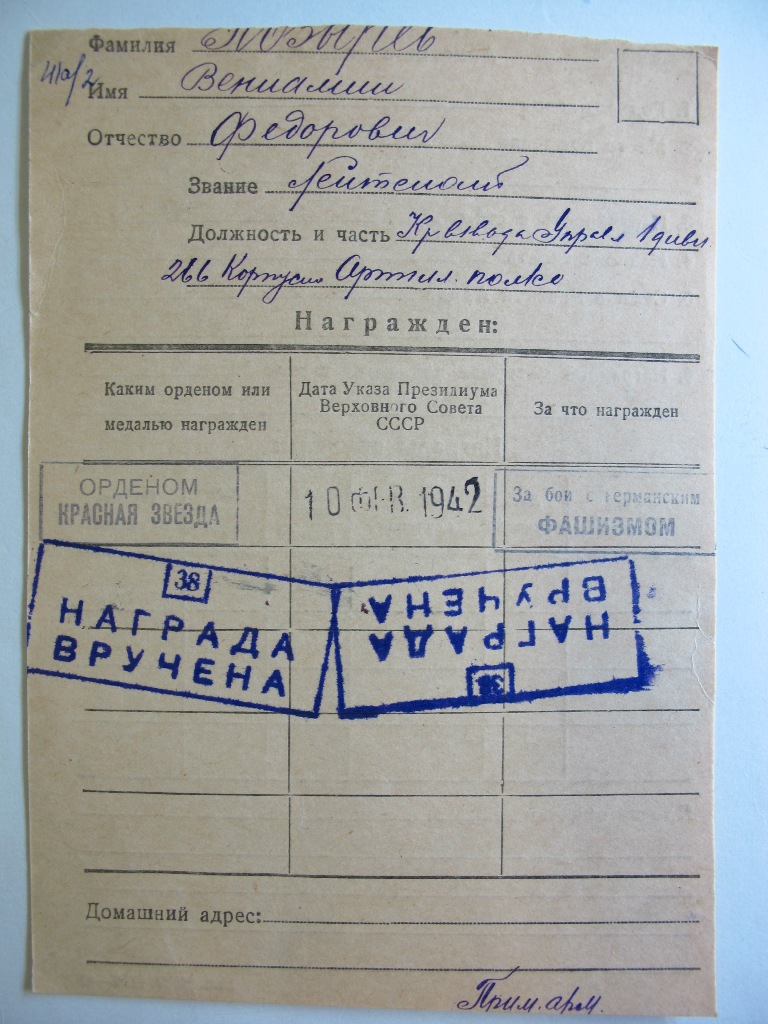 Фамилия
Имя Вениамин
Отчество Федорович
Звание Лейтенант
Должность и часть К-р взвода Управл 1 дивл.
266 Корпусн Артил. полка
Награжден:
Каким орденом или медалью награжден
Дата Указа Президиума Верховного Совета СССР
За что награжден
ОРДЕНОМ КРАСНАЯ ЗВЕЗДА
10 ФЕВ. 1942
За бои с германским ФАШИЗМОМ
38
НАГРАДА
ВРУЧЕНА
38
НАГРАДА
ВРУЧЕНА
Домашний адрес:
Прим. арм.